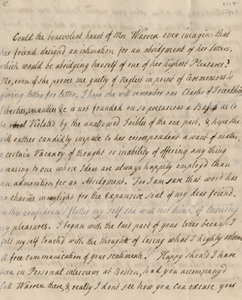 Could the benevolent heart of Mrs Warren ever imagine that
her friend design'd an intimation for an abridgment of her letters,
which would be abridging herself of one of her highest Pleasures?
No, even if she proves me guilty of neglect in point of Ceremoniously
giving letter for letter, I hope she will remember our Charter of Friendship
Liberties, immunities &c is not founded on so precarious a Basis as to
be Violated by the unallowed foibles of the one part, & hope she
will rather candidly impute to her correspondent a want of matter
a certain Vacancy of thought or inability of offering any thing
amusing to one whom I have always happily employed than
an admonition for an Abridgment. For I am sure that word has
no charms in for the expansive soul of my dear friend.
this confidence I flatter my self she will not think of lessening
my pleasures. I began with the last part of your letter because I
felt my self touched with the thought of losing what I highly esteem
free communication of your sentiments. Happy should I have
been in Personal interview at Boston, had you accompanied
Warren there, & really I dont see how you can excuse your